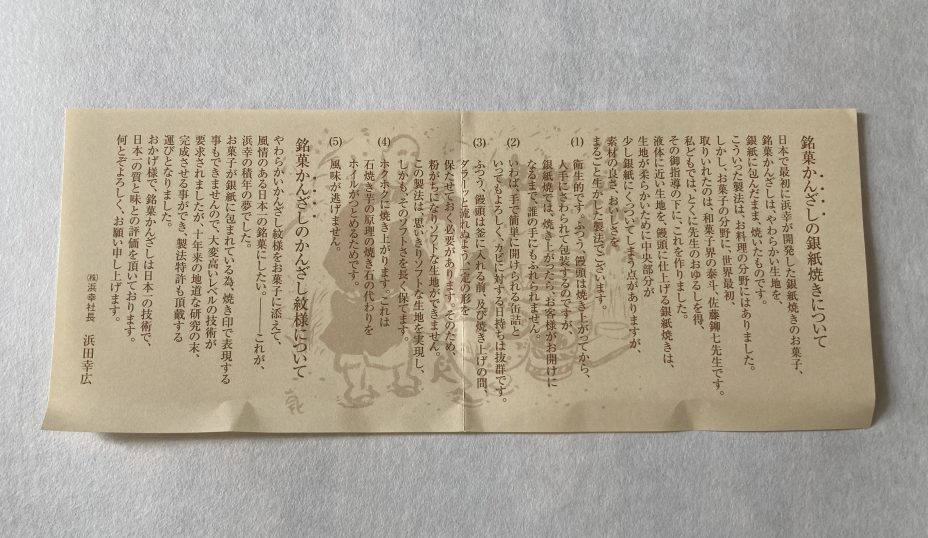 銘菓かんざしの銀紙焼きについて
日本で最初に浜幸が開発した銀紙焼きのお菓子、
銘菓かんざしは、やわらかい生地を、
銀紙に包んだまま、焼いたものです。
こういった製法は、お料理の分野にはありました。
しかし、お菓子の分野に、世界最初、
取りいれたのは、和菓子界の泰斗、佐藤鉚七先生です。
私どもでは、とくに先生のおゆるしを得、
その御指導の下に、これを作りました。
液体に近い生地を、饅頭に仕上げる銀紙焼きは、
生地が柔らかいために中央部分が
少し銀紙にくっついてしまう点がありますが、
素材の良さ、おいしさを、
まるごと生かした製法でございます。
(1) 衛生的です。ふつう、饅頭は焼き上がってから、
人手にさわられて包装するのですが、
銀紙焼では、焼き上がったら、お客様がお開けに
なるまで、誰の手にもふれられません。
(2) いわば、手で簡単に開けられる缶詰と
いってもよろしく、カビに対する日持ちは抜群です。
(3) ふつう、饅頭は釜に入れる前、及び焼き上げの間、
ダラーッと流れぬよう、一定の形を
保たせておく必要があります。そのため、
粉がちになりソフトな生地ができません。
この製法は、思いきりソフトな生地を実現し、
しかも、そのソフトさを長く保てます。
(4) ホクホクに焼き上がります。これは
石焼き芋の原理の焼き石の代わりを
ホイルがつとめるためです。
(5) 風味が逃げません。
銘菓かんざしのかんざし紋様について
やわらかいかんざし紋様をお菓子に添えて、
風情のある日本一の銘菓にしたい。――これが、
浜幸の積年の夢でした。
お菓子が銀紙に包まれている為、焼き印で表現する
事もできませんので、大変高いレベルの技術が
要求されましたが、十年来の地道な研究の末、
完成させる事ができ、製法特許も頂戴する
運びとなりました。
おかげ様で、銘菓かんざしは日本一の技術で、
日本一の質と味との評価を頂いております。
何とぞよろしく、お願い申し上げます。
㈱浜幸社長 浜田幸広